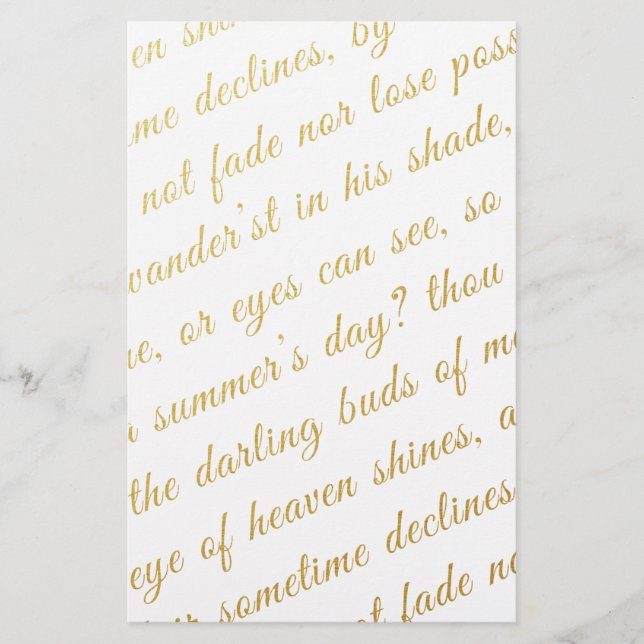 en shi
me declines, by
not fade nor lose poss
wander'st in his shade,
e, or eyes can see, so
a summer's day? thou
the darling buds of m
eye of heaven shines, a
ir sometime declines
t fade no